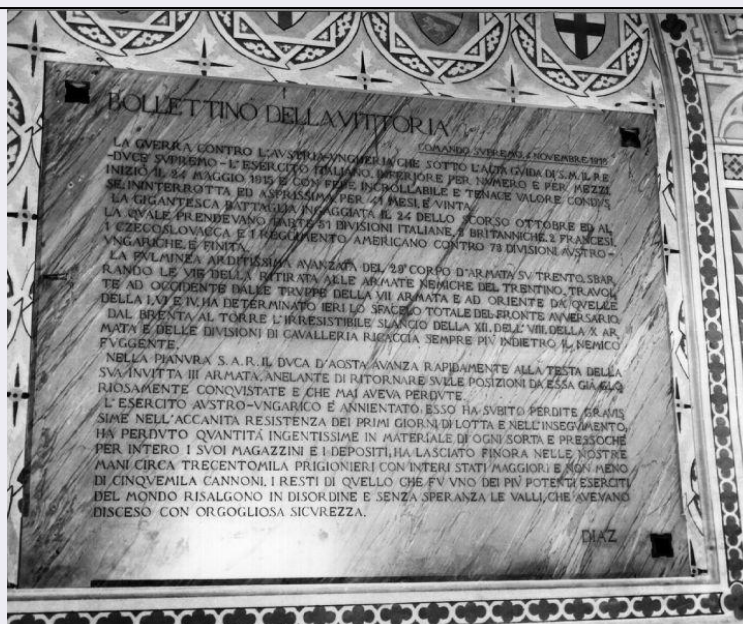 BOLLETTINO DELLA VITTORIA
COMANDO SVPREMO, 4 NOVEMBRE 1918
LA GVERRA CONTRO L'AVSTRIA-VNGHERIA CHE SOTTO L'ALTA GVIDA DI S.M. IL RE
-DVCE SVPREMO - L'ESERCITO ITALIANO, INFERIORE PER NVMERO E PER MEZZI
INIZIÒ IL 24 MAGGIO 1915 E CON FEDE INCROLLABILE E TENACE VALORE CONDVS
SE, ININTERROTTA ED ASPRISSIMA, PER 41 MESI, È VINTA.
LA GIGANTESCA BATTAGLIA INGAGGIATA IL 24 DELLO SCORSO OTTOBRE ED AL
LA QVALE PRENDEVANO PARTE 51 DIVISIONI ITALIANE, 3 BRITANNICHE, 2 FRANCESI,
1 CZECOSLOVACCA E 1 REGGIMENTO AMERICANO CONTRO 73 DIVISIONI AVSTRO-
VNGARICHE, È FINITA.
LA FVLMINEA ARDITISSIMA AVANZATA DEL 29° CORPO D'ARMATA SV TRENTO, SBAR
RANDO LE VIE DELLA RITIRATA ALLE ARMATE NEMICHE DEL TRENTINO, TRAVOL
TE AD OCCIDENTE DALLE TRVPPE DELLA VII ARMATA E AD ORIENTE DA QVELLE
DELLA I, VI E IV, HA DETERMINATO IERI LO SFACELO TOTALE DEL FRONTE AVVERSARIO.
DAL BRENTA AL TORRE L'IRRESISTIBILE SLANCIO DELLA XII, DELL'VIII, DELLA X AR
MATA E DELLE DIVISIONI DI CAVALLERIA RICACCIA SEMPRE PIÙ INDIETRO IL NEMICO
FVGGENTE.
NELLA PIANVRA S.A.R. IL DVCA D'AOSTA AVANZA RAPIDAMENTE ALLA TESTA DELLA
SVA INVITTA III ARMATA, ANELANTE DI RITORNARE SVLLE POSIZIONI DA ESSA GIÀ GLO
RIOSAMENTE CONQVISTATE E CHE MAI AVEVA PERDVTE.
L'ESERCITO AVSTRO-VNGARICO È ANNIENTATO: ESSO HA SVBITO PERDITE GRAVIS
SIME NELL'ACCANITA RESISTENZA DEI PRIMI GIORNI DI LOTTA E NELL'INSEGVIMENTO,
HA PERDVTO QVANTITÀ INGENTISSIME IN MATERIALE DI OGNI SORTA E PRESSOCHÈ
PER INTERO I SVOI MAGAZZINI E I DEPOSITI, HA LASCIATO FINORA NELLE NOSTRE
MANI CIRCA TRECENTOMILA PRIGIONIERI CON INTERI STATI MAGGIORI E NON MENO
DI CINQVEMILA CANNONI. I RESTI DI QVELLO CHE FV VNO DEI PIÙ POTENTI ESERCITI
DEL MONDO RISALGONO IN DISORDINE E SENZA SPERANZA LE VALLI, CHE AVEVANO
DISCESO CON ORGOGLIOSA SICVREZZA.
DIAZ